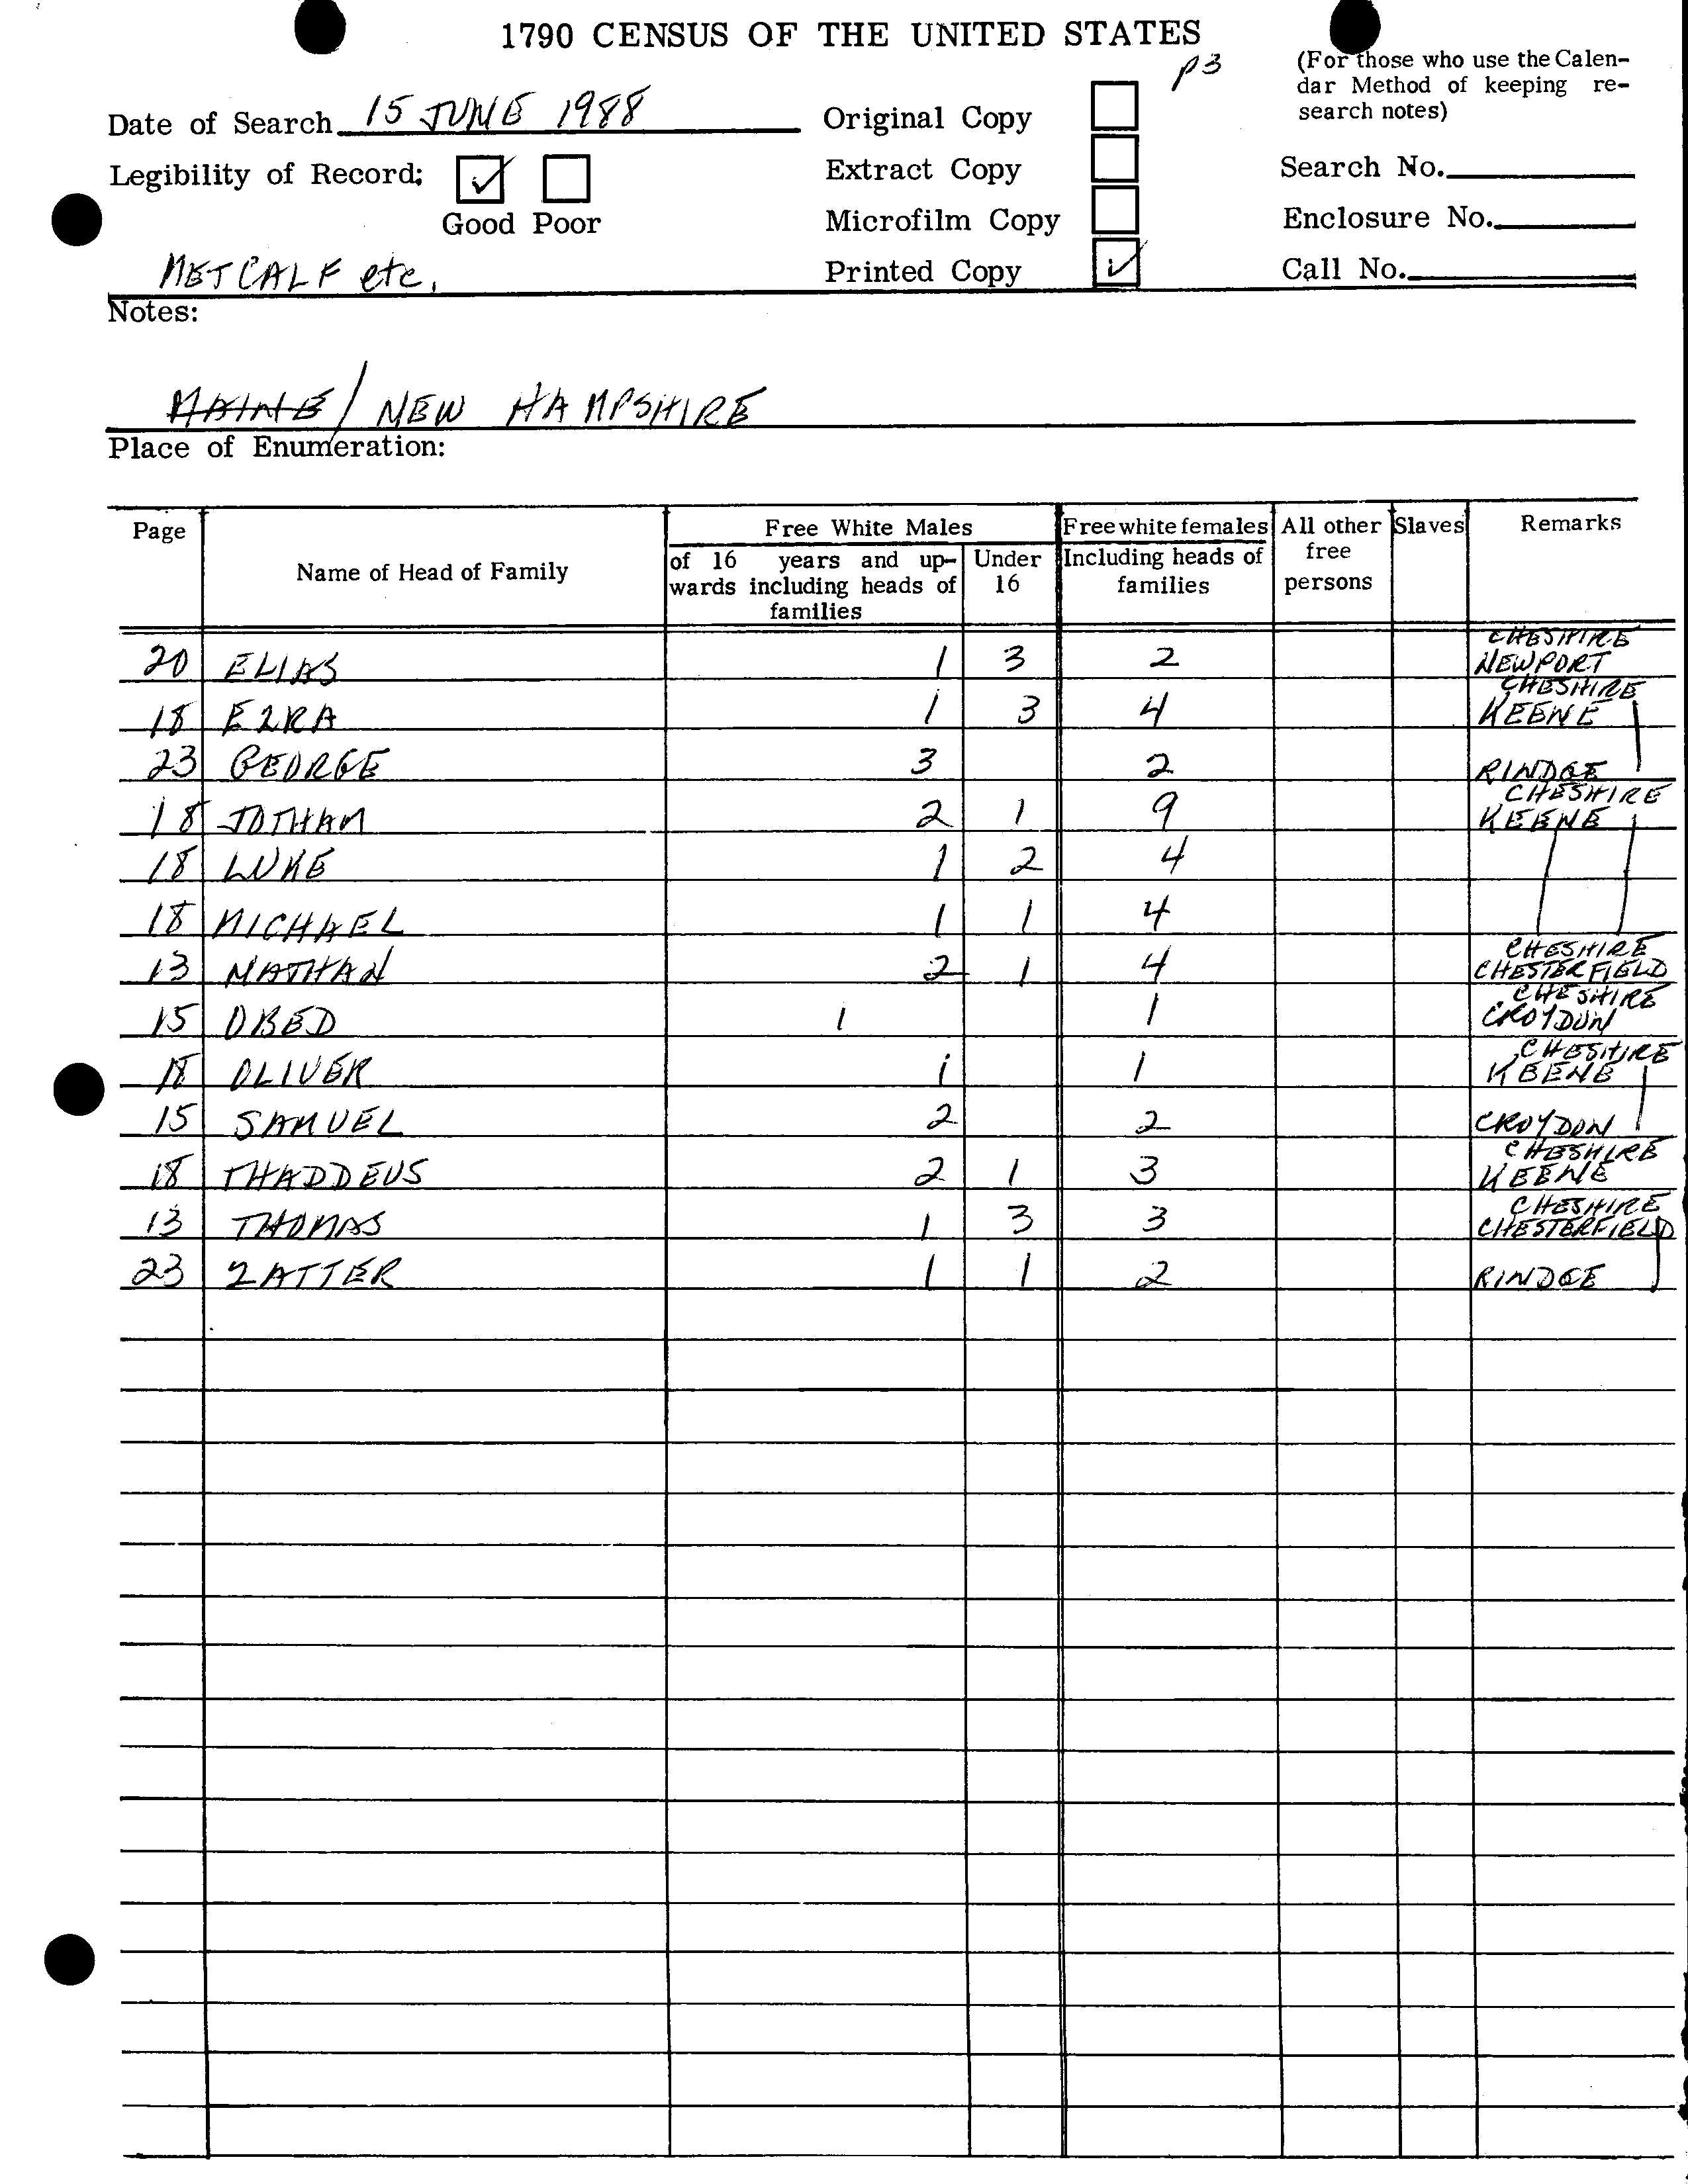 1790 CENSUS OF THE UNITED STATES
p3
(For those who use the Calen-
dar Method of keeping re-
search notes)
Date of Search 15 JUNE 1988
Original Copy
Legibility of Record; ✓
Good Poor
Extract Copy
Search No.
Microfilm Copy
Enclosure No.
METCALF etc.
Printed Copy ✓
Call No.
Notes:
MAINE / NEW HAMPSHIRE
Place of Enumeration:
Page
Name of Head of Family
Free White Males
of 16 years and up-
wards including heads of
families
Under
16
Free white females
Including heads of
families
All other
free
persons
Slaves
Remarks
20 ELIAS 1 3 2 CHESHIRE NEWPORT
18 EZRA 1 3 4 CHESHIRE KEENE
23 GEORGE 3 2 RINDGE
18 JOTHAM 2 1 9 CHESHIRE KEENE
18 LUKE 1 2 4
18 MICHAEL 1 1 4
13 NATHAN 2 1 4 CHESHIRE CHESTERFIELD
15 OBED 1 1 CHESHIRE CROYDON
18 OLIVER 1 1 CHESHIRE KEENE
15 SAMUEL 2 2 CROYDON
18 THADDEUS 2 1 3 CHESHIRE KEENE
13 THOMAS 1 3 3 CHESHIRE CHESTERFIELD
23 ZATTER 1 1 2 RINDGE